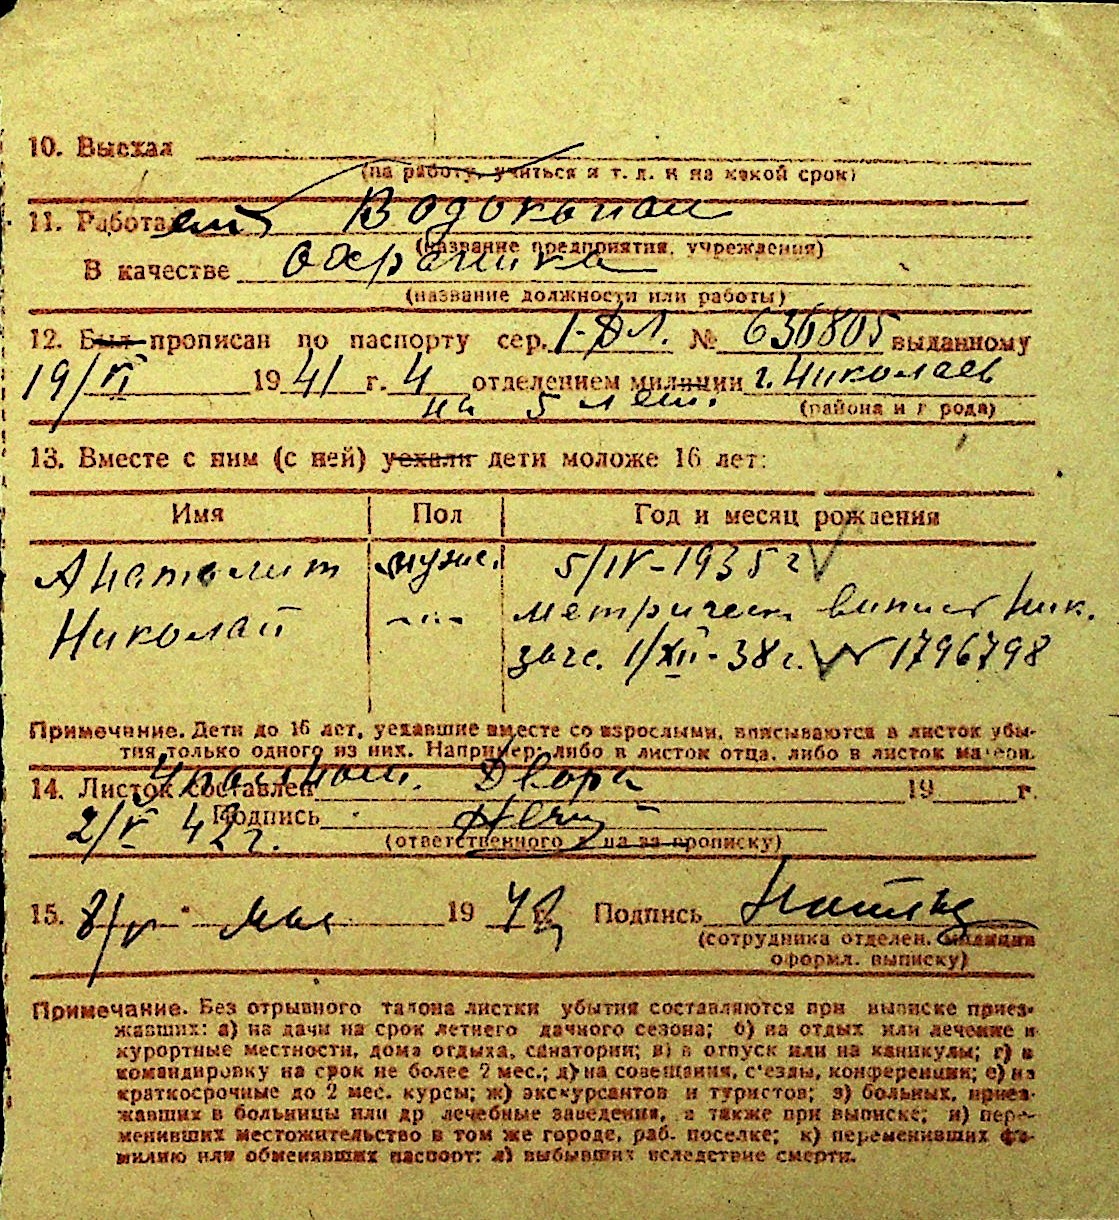 10. Выехал
(на работу, учиться и т. д. и на какой срок)
11. Работает Водоканал
(название предприятия, учреждения)
В качестве
(название должности или работы)
12. Был прописан по паспорту сер. № 636805 выданному
19/VI 1941 г. 4 отделением милиции г. Николаев
на 5 лет.
(района и города)
13. Вместе с ним (с ней) уехали дети моложе 16 лет:
Имя Пол Год и месяц рождения
Анатолит муж. 5/IV-1935 г
Николай -"- метрическ Ник.
загс. 1/XII-38 г. № 1796798
Примечание. Дети до 16 лет, уехавшие вместе со взрослыми, вписываются в листок убы-
тия только одного из них. Например: либо в листок отца, либо в листок матери.
14. Листок составлен Двора 19 г.
2/V 42 г. Подпись
(ответственного лица за прописку)
15. 8/V мая 1942 г. Подпись
(сотрудника отделен. милиции
оформл. выписку)
Примечание. Без отрывного талона листки убытия составляются при выписке приез-
жавших: а) на дачи на срок летнего дачного сезона; б) на отдых или лечение в
курортные местности, дома отдыха, санатории; в) в отпуск или на каникулы; г) в
командировку на срок не более 2 мес.; д) на совещания, с'езды, конференции; е) на
краткосрочные до 2 мес. курсы; ж) экскурсантов и туристов; з) больных, приез-
жавших в больницы или др лечебные заведения, а также при выписке; и) пере-
менивших местожительство в том же городе, раб. поселке; к) переменивших фа-
милию или обменявших паспорт; л) выбывших вследствие смерти.